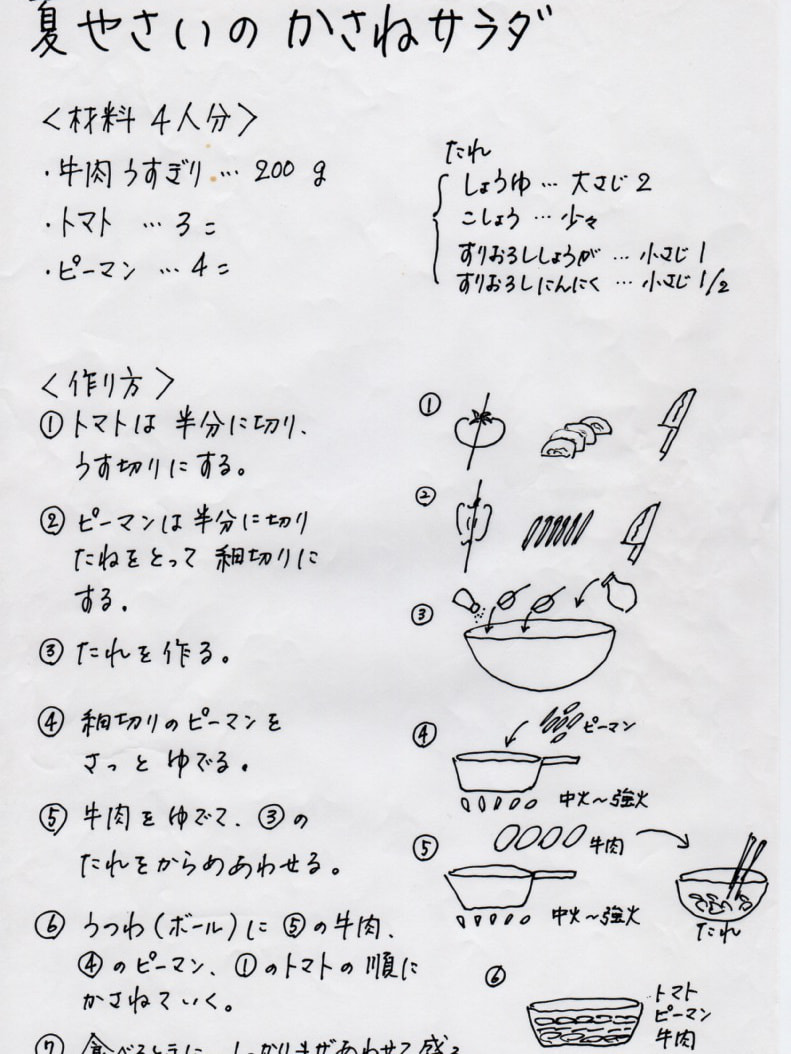 夏やさいのかさねサラダ
<材料 4人分>
・牛肉うすぎり … 200 g
・トマト … 3コ
・ピーマン … 4コ
たれ
しょうゆ … 大さじ 2
こしょう … 少々
すりおろししょうが … 小さじ 1
すりおろしにんにく … 小さじ 1/2
<作り方>
① トマトは 半分に切り、
うす切りにする。
② ピーマンは半分に切り
たねをとって 細切りに
する。
③ たれを作る。
④ 細切りのピーマンを
さっと ゆでる。
⑤ 牛肉をゆでて、③の
たれをからめあわせる。
⑥ うつわ(ボール)に ⑤の牛肉、
④のピーマン、①のトマトの順に
かさねていく。
⑦ 食べるときに、しっかりまぜあわせて盛る
①
②
③
④
ピーマン
中火〜強火
⑤
牛肉
中火〜強火
たれ
⑥
トマト
ピーマン
牛肉